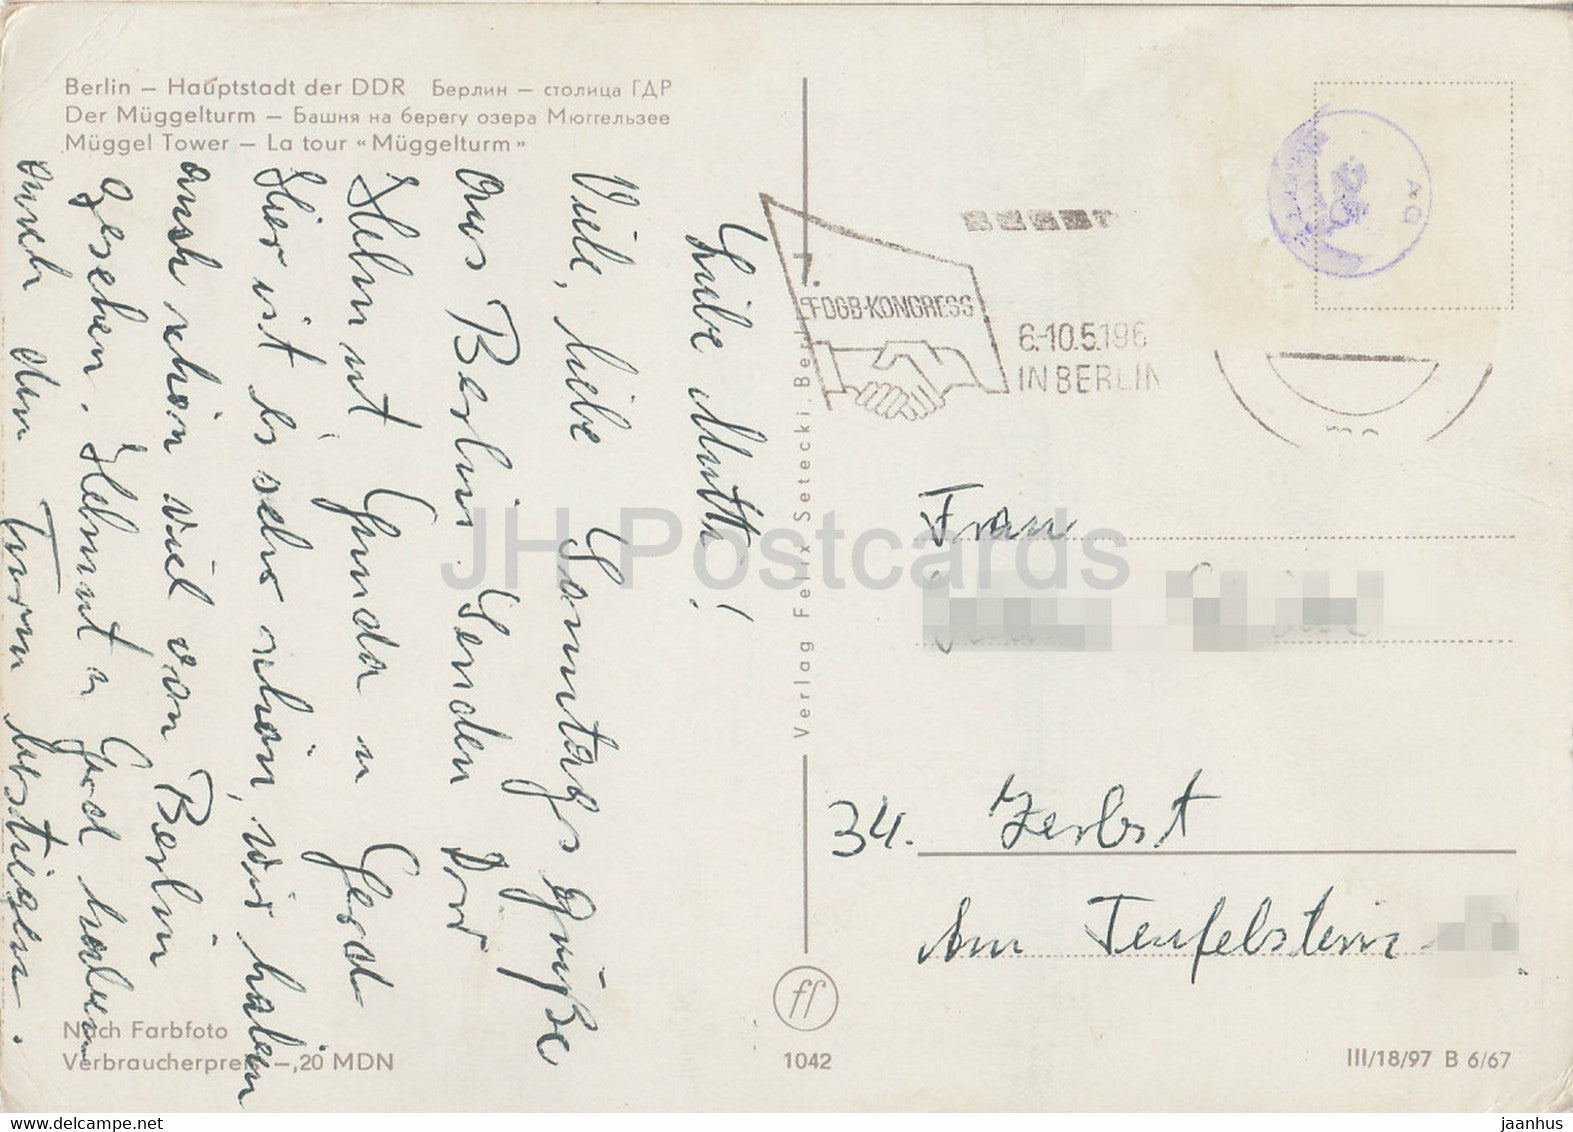 Berlin – Hauptstadt der DDR Берлин – столица ГДР
Der Müggelturm – Башня на берегу озера Мюггельзее
Müggel Tower – La tour «Müggelturm»
Liebe Mutti!
Viele, liebe Sonntagsgrüße
aus Berlin. Senden Dir
Helmut Gunda u Gerd
Hier ist es sehr schön, wir haben
auch schon viel von Berlin
gesehen. Helmut u Gerd haben
auch den Turm bestiegen.
Nach Farbfoto
Verbraucherpreis –,20 MDN
Verlag Felix Setecki, Berlin
ff
1042
FDGB-KONGRESS
6.-10.5.196
IN BERLIN
Frau
34. Zerbst
Am Teufelstein
III/18/97 B 6/67
JH Postcards
delcampe.net
jaanhus